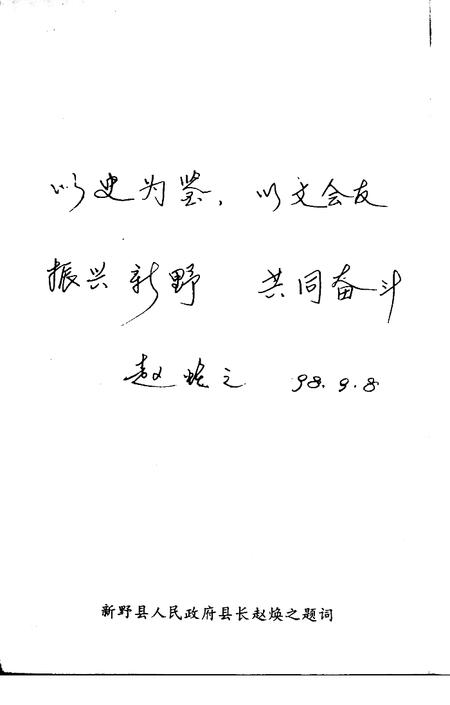 以史为鉴，以文会友
振兴新野 共同奋斗
赵焕之 98.9.8
新野县人民政府县长赵焕之题词